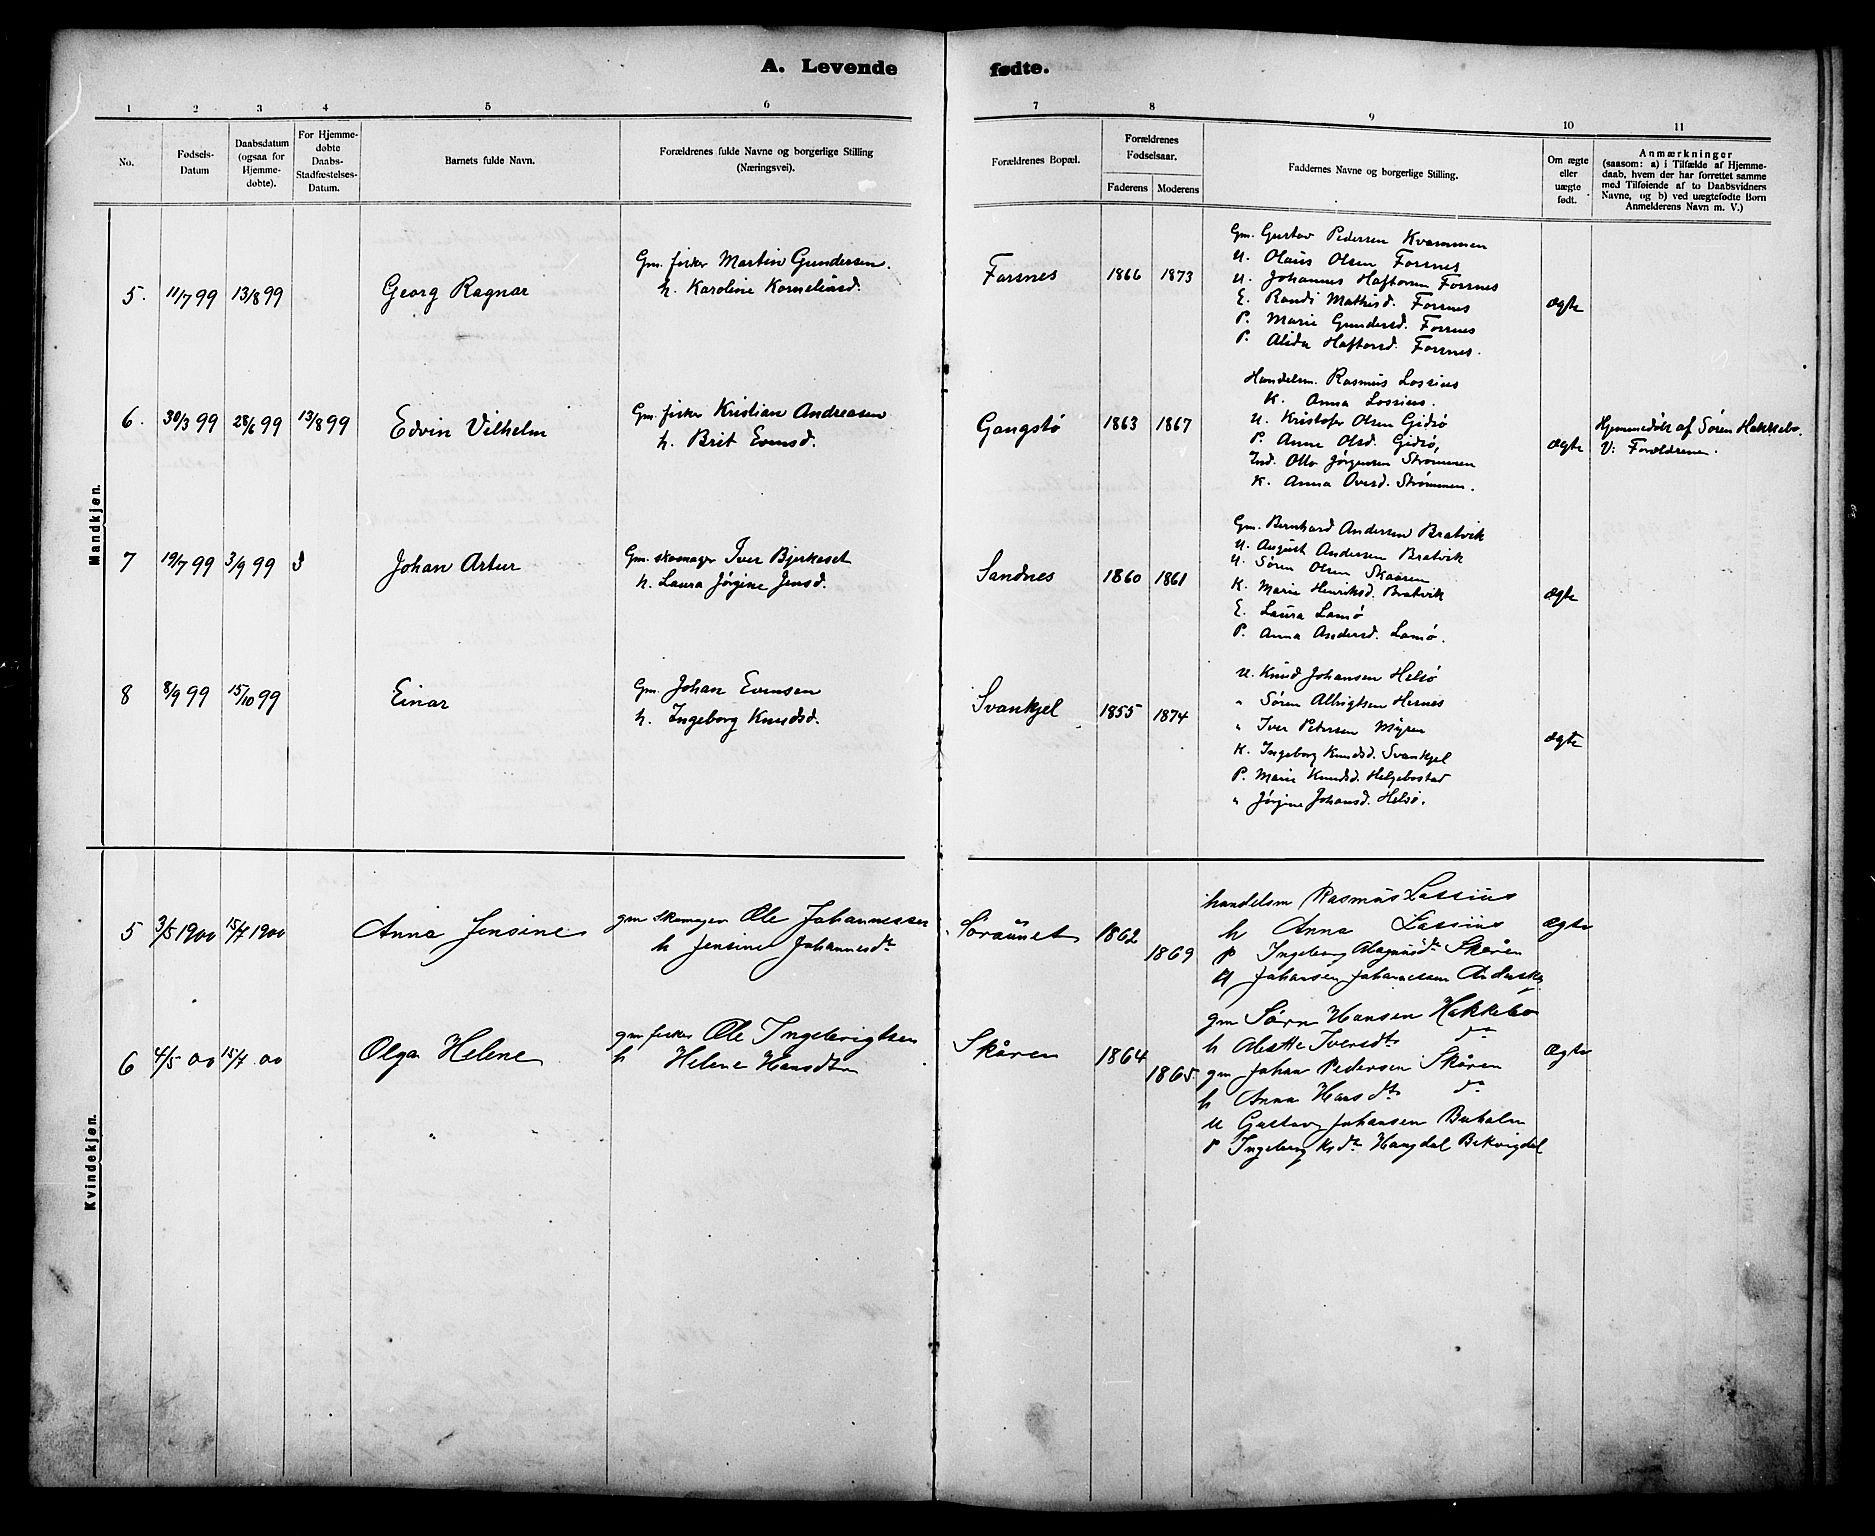 A. Levende fødte.
1 2 3 4 5 6 7 8 9 10 11
No.
Fødsels-
Datum
Daabsdatum
(ogsaa for
Hjemme-
døbte).
For Hjemme-
døbte
Daabs-
Stadfæstelses-
Datum.
Barnets fulde Navn.
Forældrenes fulde Navne og borgerlige Stilling
(Næringsvei).
Forældrenes Bopæl.
Forældrenes
Fødselsaar.
Faderens Moderens
Faddernes Navne og borgerlige Stilling.
Om ægte
eller
uægte
født.
Anmærkninger
(saasom: a) i Tilfælde af Hjemme-
daab, hvem der har forrettet samme
med Tilføiende af to Daabsvidners
Navne, og b) ved uægtefødte Børn
Anmelderens Navn m. V.)
Mandkjøn.
5. 11/7 99 13/8 99 Georg Ragnar
Gm. fisker Martin Gundersen.
h. Karoline Korneliusd.
Forsnes 1866 1873
Gm. Gustav Pedersen Kvammen
U. Olaus Olsen Forsnes
U. Johannes Haftorsen Forsnes
E. Randi Mathisd. Forsnes
P. Marie Gundersd. Forsnes
P. Alida Haftorsd. Forsnes.
ægte
6. 30/3 99 28/6 99 13/8 99 Edvin Vilhelm
Gm. fisker Kristian Andreasen
h. Brit Evensd.
Gangstø 1863 1867
Handelsm. Rasmus Lossius
K. Anna Lossius.
U. Kristofer Olsen Gidsø
P. Anne Olsd. Gidsø,
Ind. Otto Jørgensen Strømmen
K. Anna Oversd. Strømmen.
ægte
Hjemmedøbt af Søren Hakkebo.
V: Forældrene.
7 19/7 99 3/9 99 3 Johan Artur
Gm. skomager Iver Bjerkeset
h. Laura Jørgine Jensd.
Sandnes 1860 1861
Gm. Bernhard Andersen Bratvik
U. August Andersen Bratvik
U. Søren Olsen Skaaren
K. Marie Henriksd. Bratvik
E. Laura Lamø
P. Anna Andersd. Lamø.
ægte
8 8/9 99 15/10 99 Einar
Gm. Johan Evensen
h. Ingeborg Knudsd.
Svankjel 1855 1874
U. Knud Johansen Helsø
" Søren Albrigtsen Hernes
" Iver Petersen Myren
K. Ingeborg Knudsd. Svankjel
P. Marie Knudsd. Helgebostad
" Jørgine Johansd. Helsø.
ægte
Kvindekjøn.
5 3/5 1900 15/7 1900 Anna Jensine
gm skomager Ole Johannessen
h Jensine Johannesdt
Søraunet 1862 1869
handelsm Rasmus Lossius
h Anna Lossius
p Ingeborg Magnusdt Skåren
U Johansen Johannessen
ægte
6 4/5 00 15/7 00 Olga Helene
gm fisker Ole Ingebrigtsen
h Helene Hansdtr
Skåren 1864 1865
gm Sørn Hansen Hakkebo
h Alette Iversdtr do
gm Johan Pedersen Skåren
h Anna Hansdtr do
U Gustav Johansen Buholm
p Ingeborg
ægte